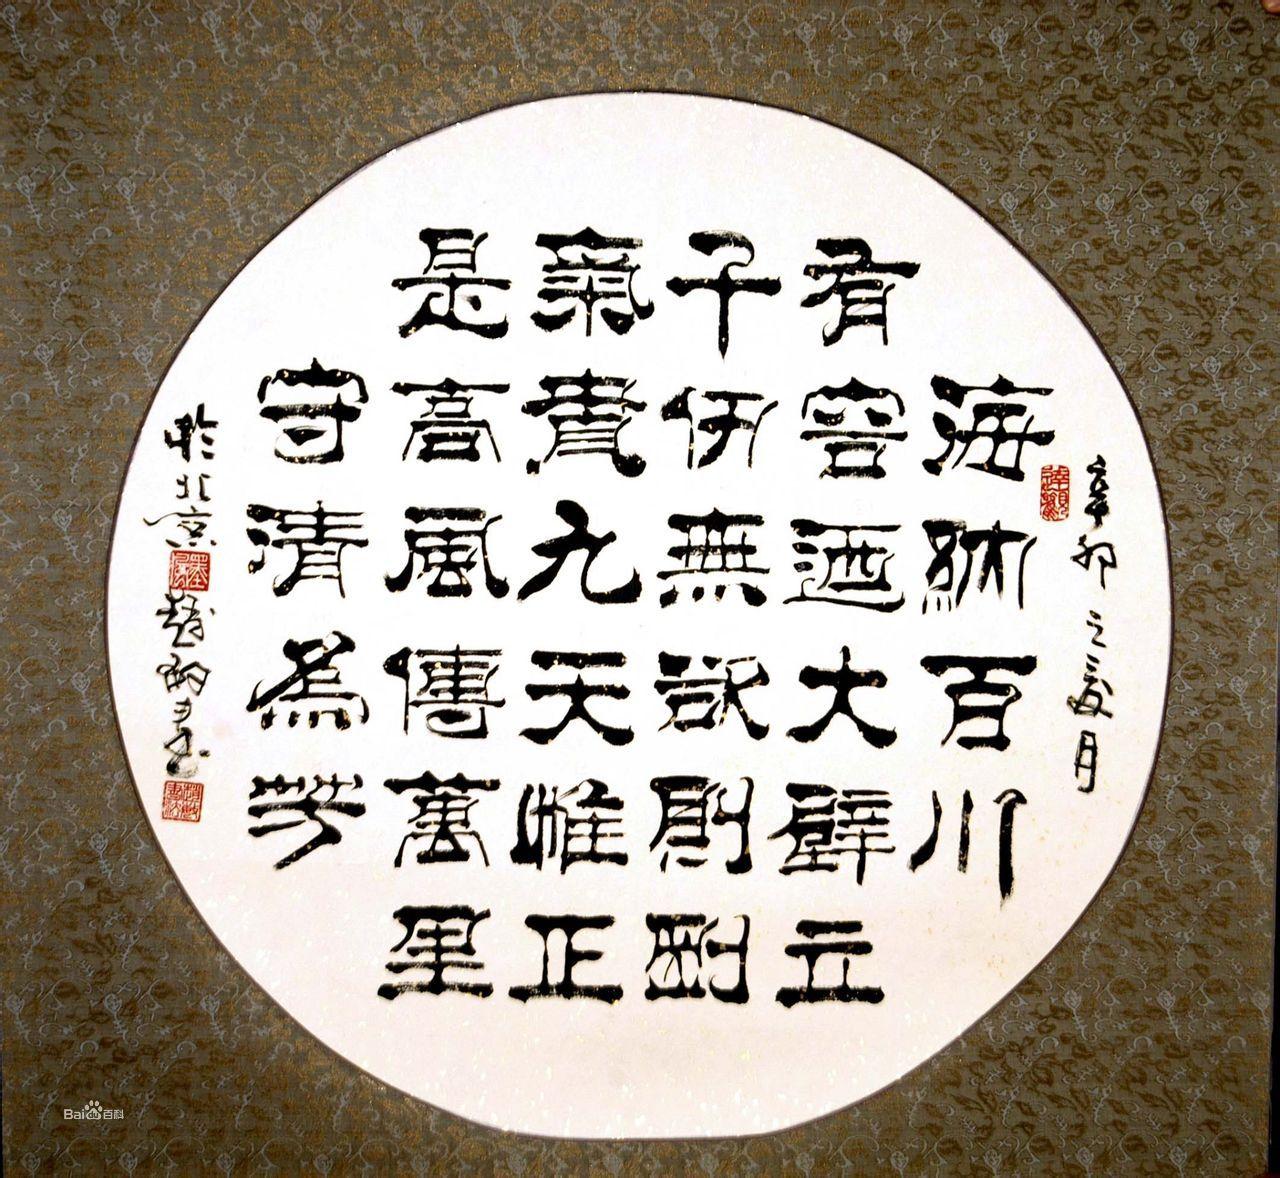 辛卯之夏月
海納百川
有容迺大壁立
千仞無欲則剛
氣貫九天惟正
是高風傳萬里
守清為芳
於北京
書
Bai百科